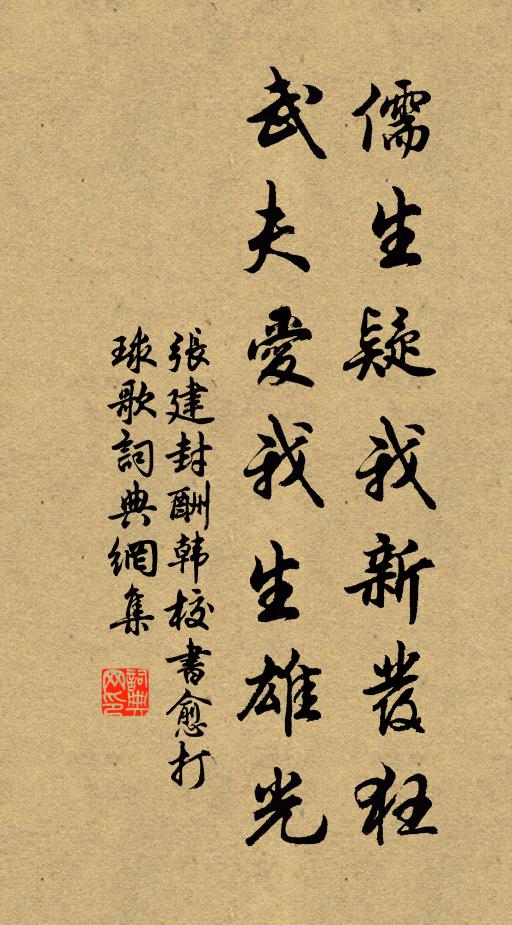 儒生疑我新發狂
武夫愛我生雄光
張建封酬韩校書愈打
球歌詞典網集
詞典网印